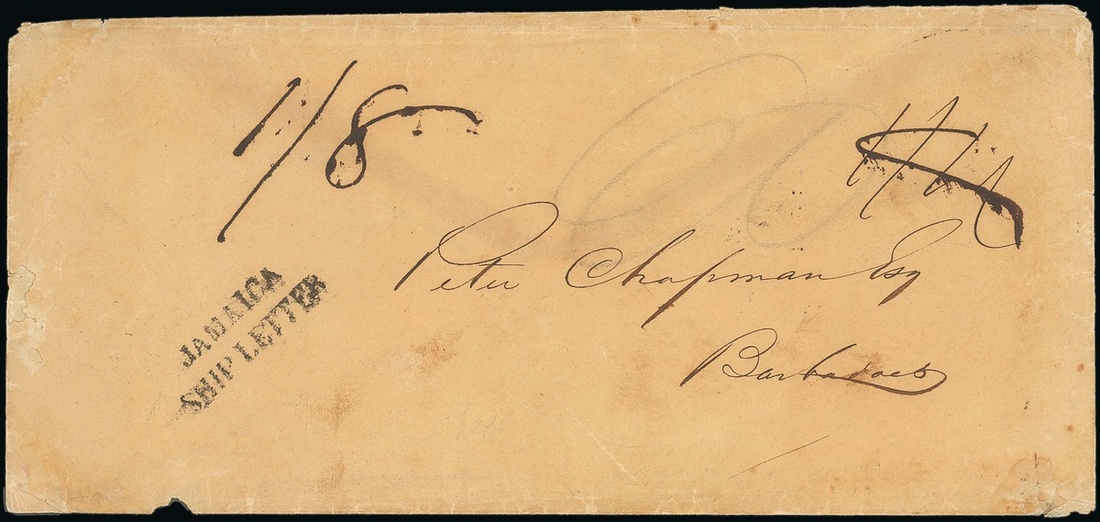 1/8
Peter Chapman Esq
Barbadoes
JAMAICA
SHIP LETTER